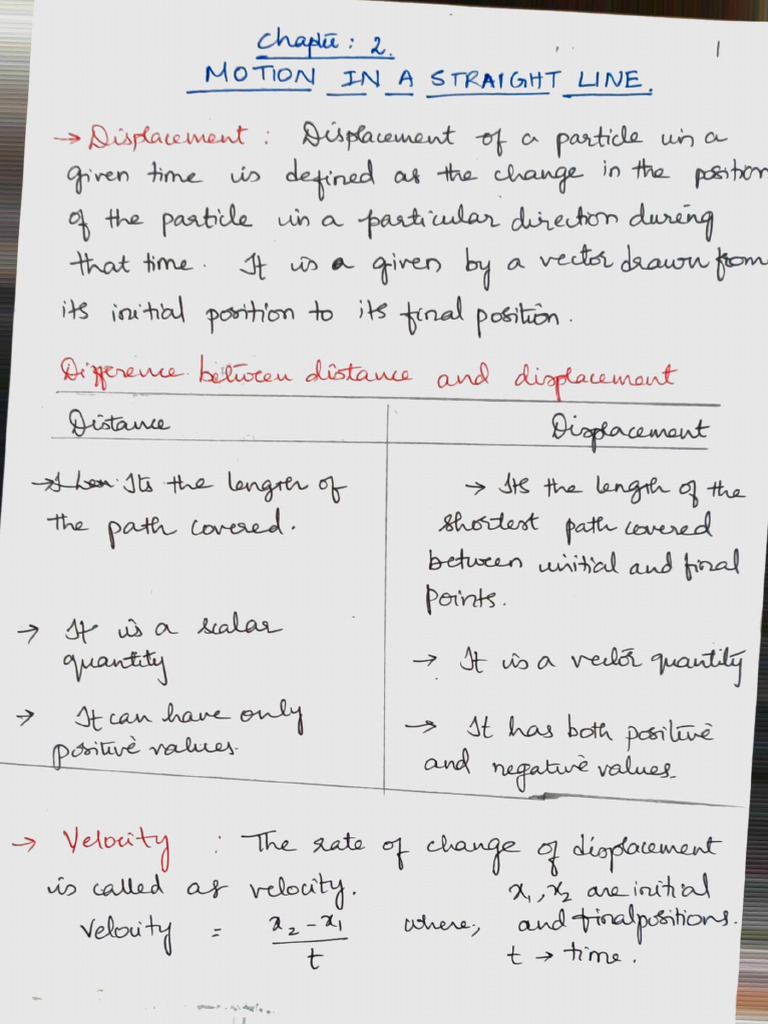 Chapter : 2.
1
MOTION IN A STRAIGHT LINE.
→ Displacement : Displacement of a particle in a
given time is defined as the change in the position
of the particle in a particular direction during
that time. It is a given by a vector drawn from
its initial position to its final position.
Difference between distance and displacement
Distance
Displacement
→ Its the length of
the path covered.
→ It is a scalar
quantity
→ It can have only
positive values.
→ Its the length of the
shortest path covered
between initial and final
points.
→ It is a vector quantity
→ It has both positive
and negative values.
→ Velocity : The rate of change of displacement
is called as velocity.
Velocity = x₂ - x₁ / t where,
x₁, x₂ are initial
and final positions.
t → time.